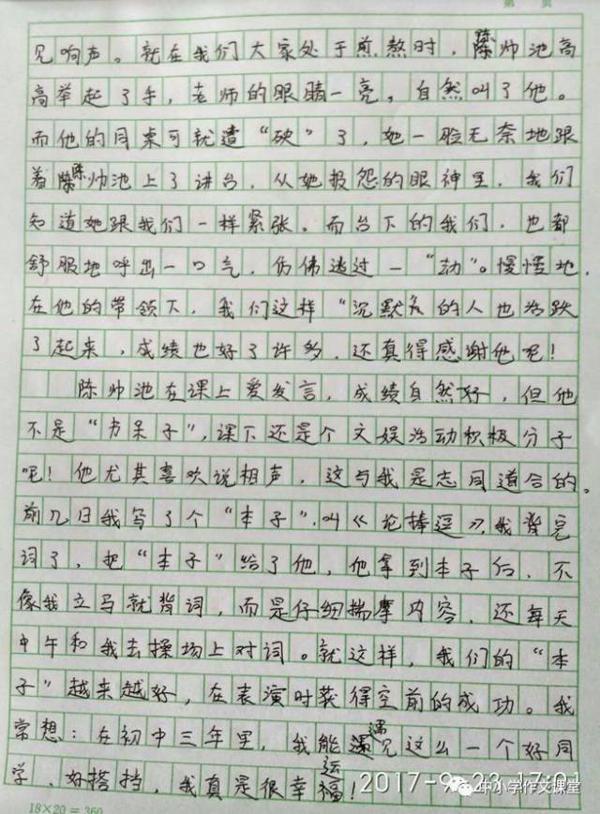 第 页
见响声。就在我们大家处于煎熬时，陈帅池高
高举起了手，老师的眼睛一亮，自然叫了他。
而他的同桌可就遭“殃”了，她一脸无奈地跟
着陈帅池上了讲台，从她报怨的眼神里，我们
知道她跟我们一样紧张。而台下的我们，也都
舒服地呼出一口气，仿佛逃过一“劫”。慢慢地，
在他的带领下，我们这样“沉默”的人也活跃
了起来，成绩也好了许多，还真得感谢他呢！
陈帅池在课上爱发言，成绩自然好，但他
不是“书呆子”，课下还是个文娱活动积极分子
呢！他尤其喜欢说相声，这与我是志同道合的。
前几日我写了个“本子”，叫《论捧逗》，我背完
词了，把“本子”给了他，他拿到本子后，不
像我立马就背词，而是仔细揣摩内容，还每天
中午和我去操场上对词。就这样，我们的“本
子”越来越好，在表演时获得空前的成功。我
常想：在初中三年里，我能遇见这么一个好同
学、好搭挡，我真是很幸运！
18×20=360
2017-9-23 17:01
中小学作文课堂